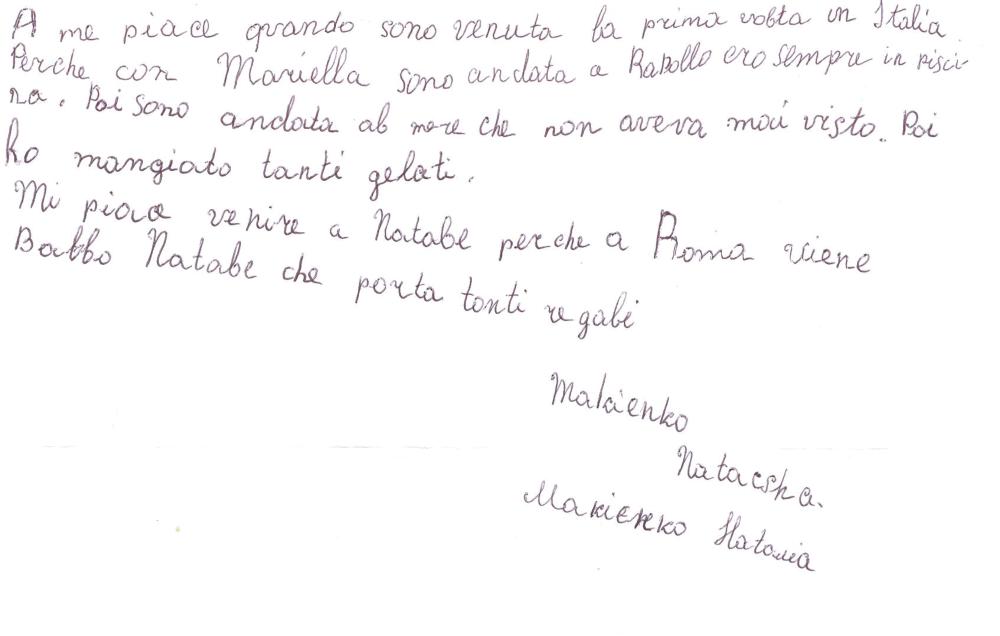 A me piace quando sono venuta la prima volta in Italia.
Perche con Mariella sono andata a Rapollo ero sempre in pisci-
na. Poi sono andata al mare che non aveva mai visto. Poi
ho mangiato tanti gelati.
Mi piace venire a Natale perche a Roma viene
Babbo Natale che porta tanti regali
Makienko
Natacsha.
Макієнко Наталія